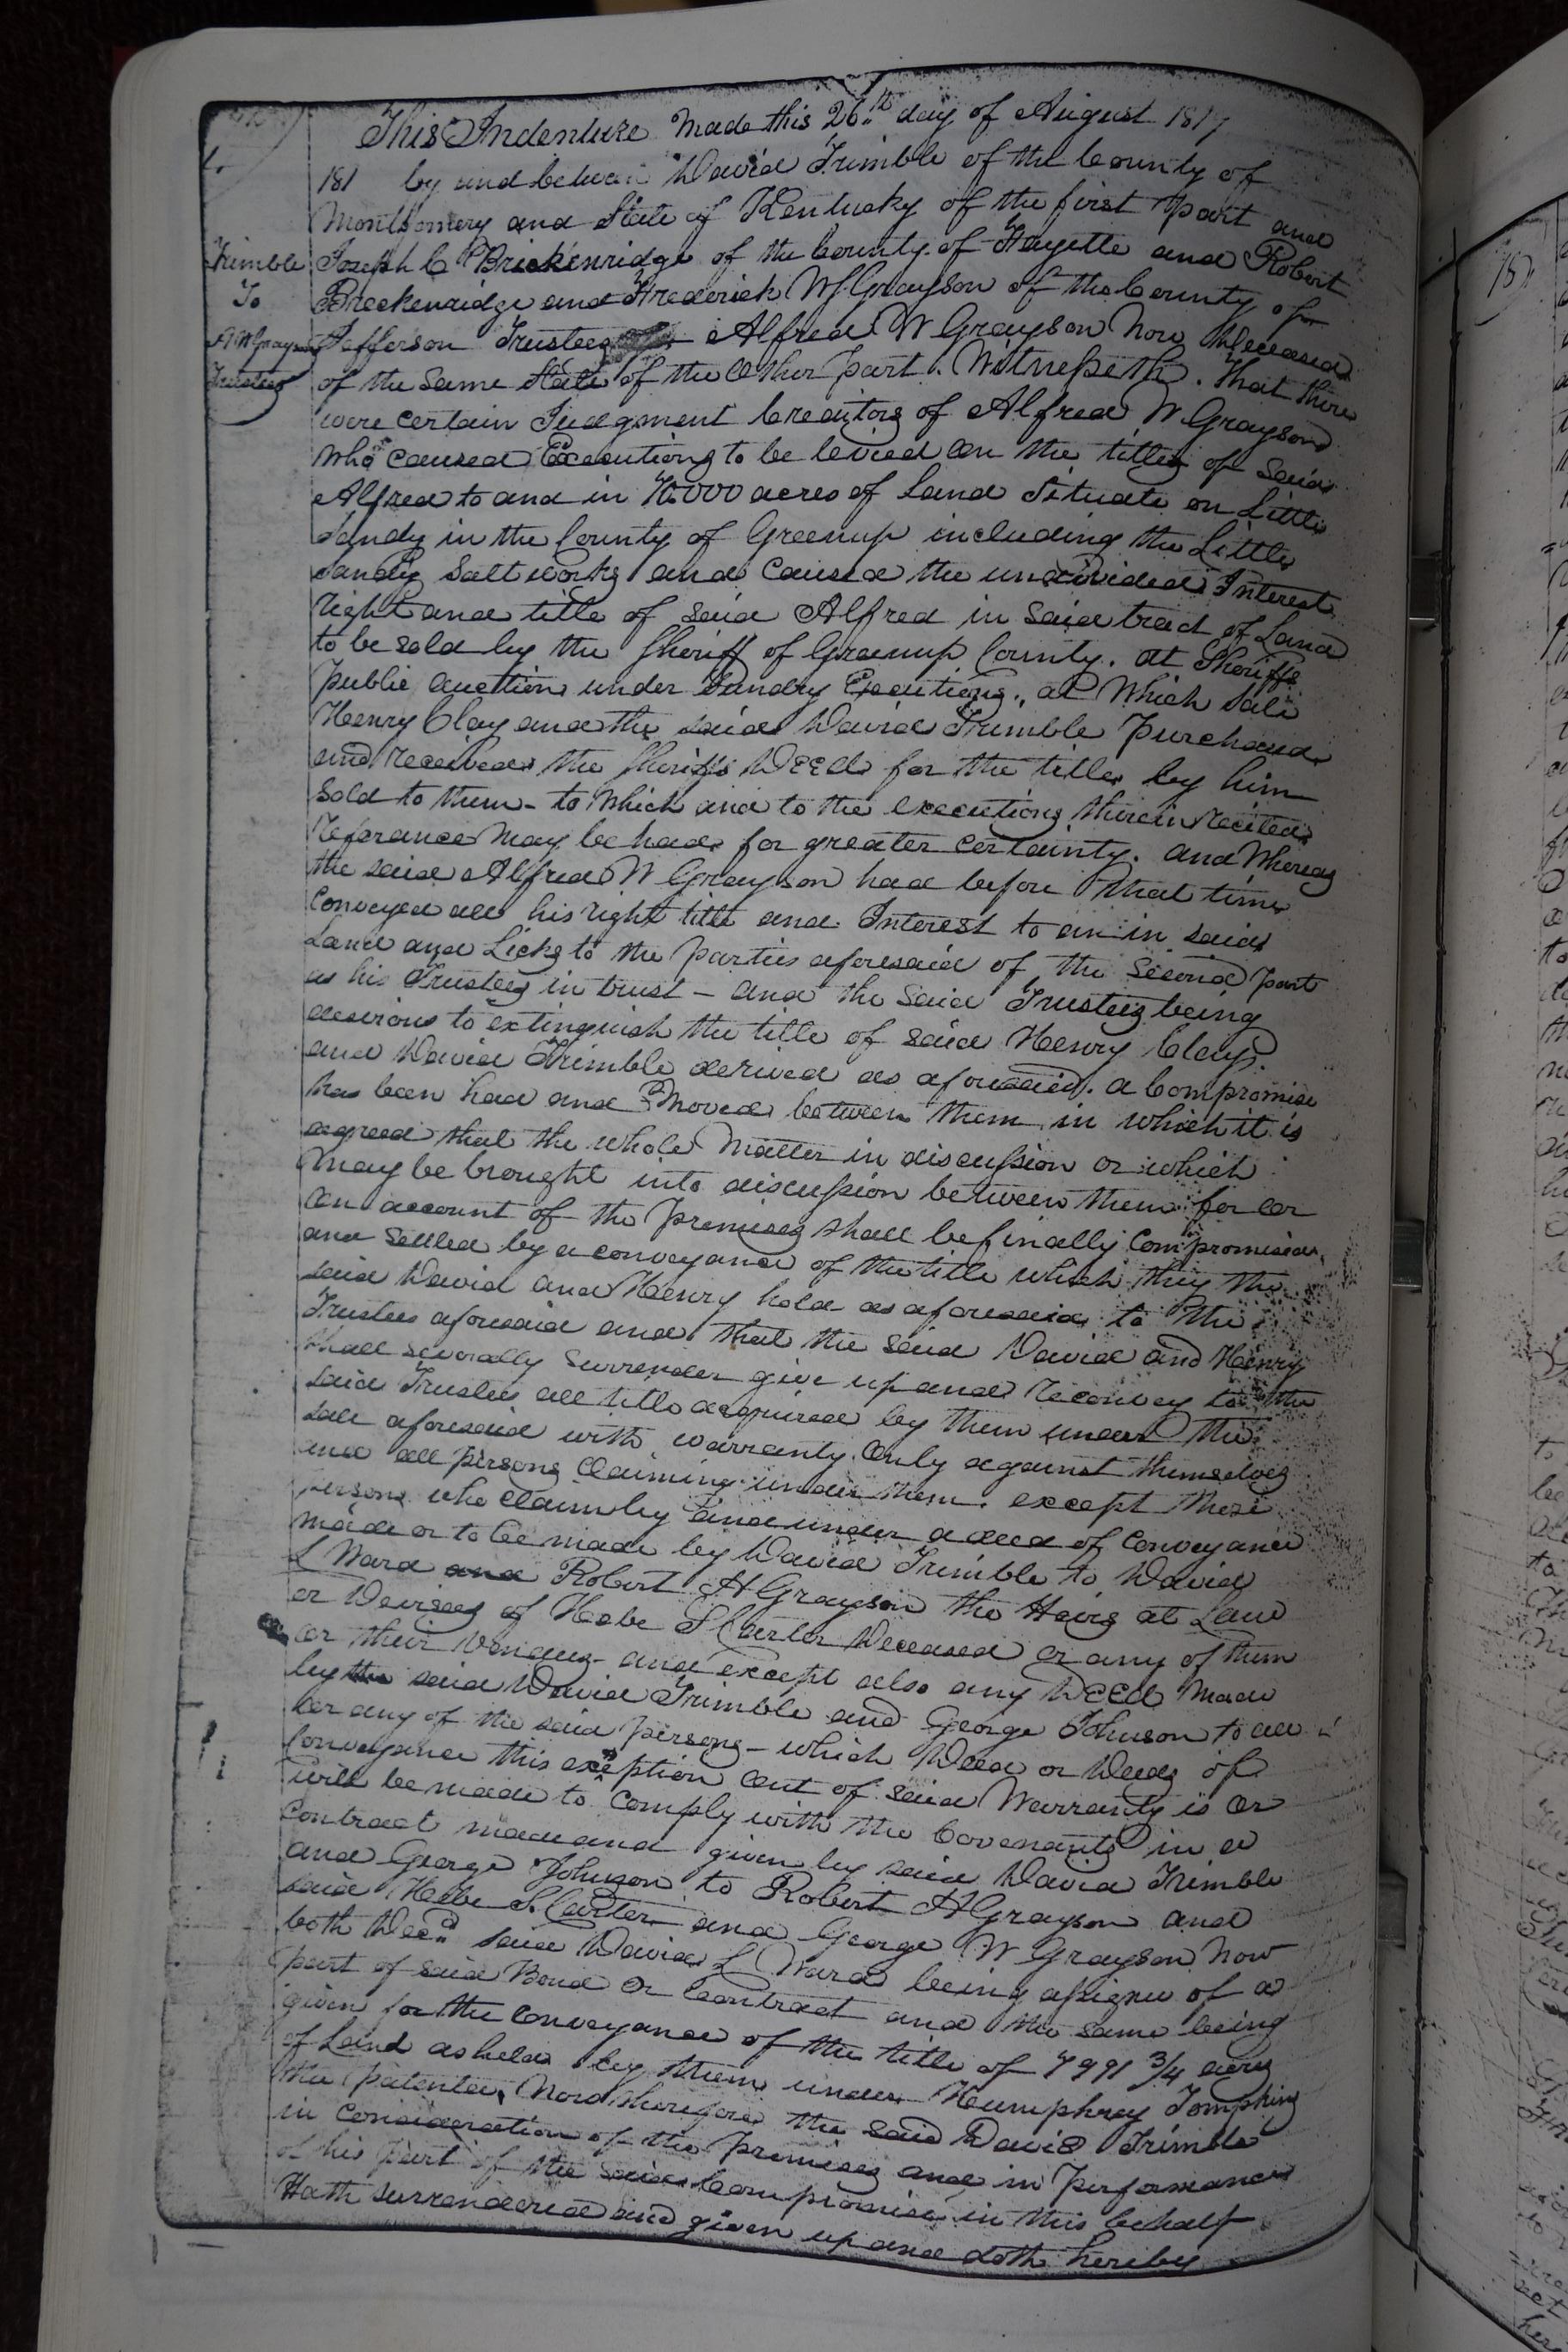 This Indenture Made this 26th day of August 1817
181 by and between David Trimble of the County of
Montgomery and State of Kentucky of the first part and
Trimble
To
AW Grayson
Trustees
Joseph C Brickenridge of the County of Fayette and Robert
Breckenridge and Frederick W S Grayson of the County of
Jefferson Trustees Alfred W Grayson Now Deceased
of the Same State of the Other Part. Witnesseth. That there
were certain Judgment Creditors of Alfred W Grayson
who caused Executions to be levied on the titles of said
Alfred to and in 70.000 acres of Land Situate on Little
Sandy in the County of Greenup including the Little
Sandy Salt works and Caused the undivided Interest
right and title of said Alfred in said tract of Land
to be sold by the Sheriff of Greenup County. at Sheriffs
Public Auction under Sundry Executions. at Which Sale
Henry Clay and the said David Trimble Purchased
and received the Sheriffs Deed for the titles by him
Sold to them - to which and to the executions therein recited
referance may be had for greater certainty. and Whereas
the said Alfred W Grayson had before that time
Conveyed all his right title and Interest to an in said
Land and Licks to the Parties aforesaid of the Second part
as his Trustees in trust - and the said Trustees being
desirous to extinguish the title of said Henry Clay
and David Trimble derived as aforesaid. a Compromise
has been had and Moved between them in which it is
agreed that the whole Matter in discussion or which
may be brought into discussion between them for or
on account of the Premises shall be finally Compromised
and Settled by a conveyance of the title which they the
said David and Henry hold as aforesaid to the
Trustees aforesaid and that the said David and Henry
shall severally surrender give up and reconvey to the
said Trustees all title acquired by them under the
sale aforesaid with warranty only against themselves
and all persons claiming under them. except these
persons who claim by and under a deed of conveyance
made or to be made by David Trimble to David
L Ward and Robert H Grayson the Heirs at Law
or Devisees of Hebe S Carter Deceased or any of them
or their Vendees - and except also any Deed Made
by the said David Trimble and George Johnson to all
or any of the said persons - which Deed or Deeds of
Conveyance this exception out of said Warranty is or
will be made to comply with the Covenants in a
contract made and given by said David Trimble
and George Johnson to Robert H Grayson and
said Hebe S. Carter and George W Grayson Now
both Decd. said David L Ward being assignee of a
part of said Bond or Contract and the same being
given for the conveyance of the title of 7991 3/4 acres
of Land as held by them under Humphrey Tompkins
the patentee, Now therefore the said David Trimble
in consideration of the Premises and in Performance
of his part of the said Compromise in this behalf
Hath surrendered and given up and doth hereby